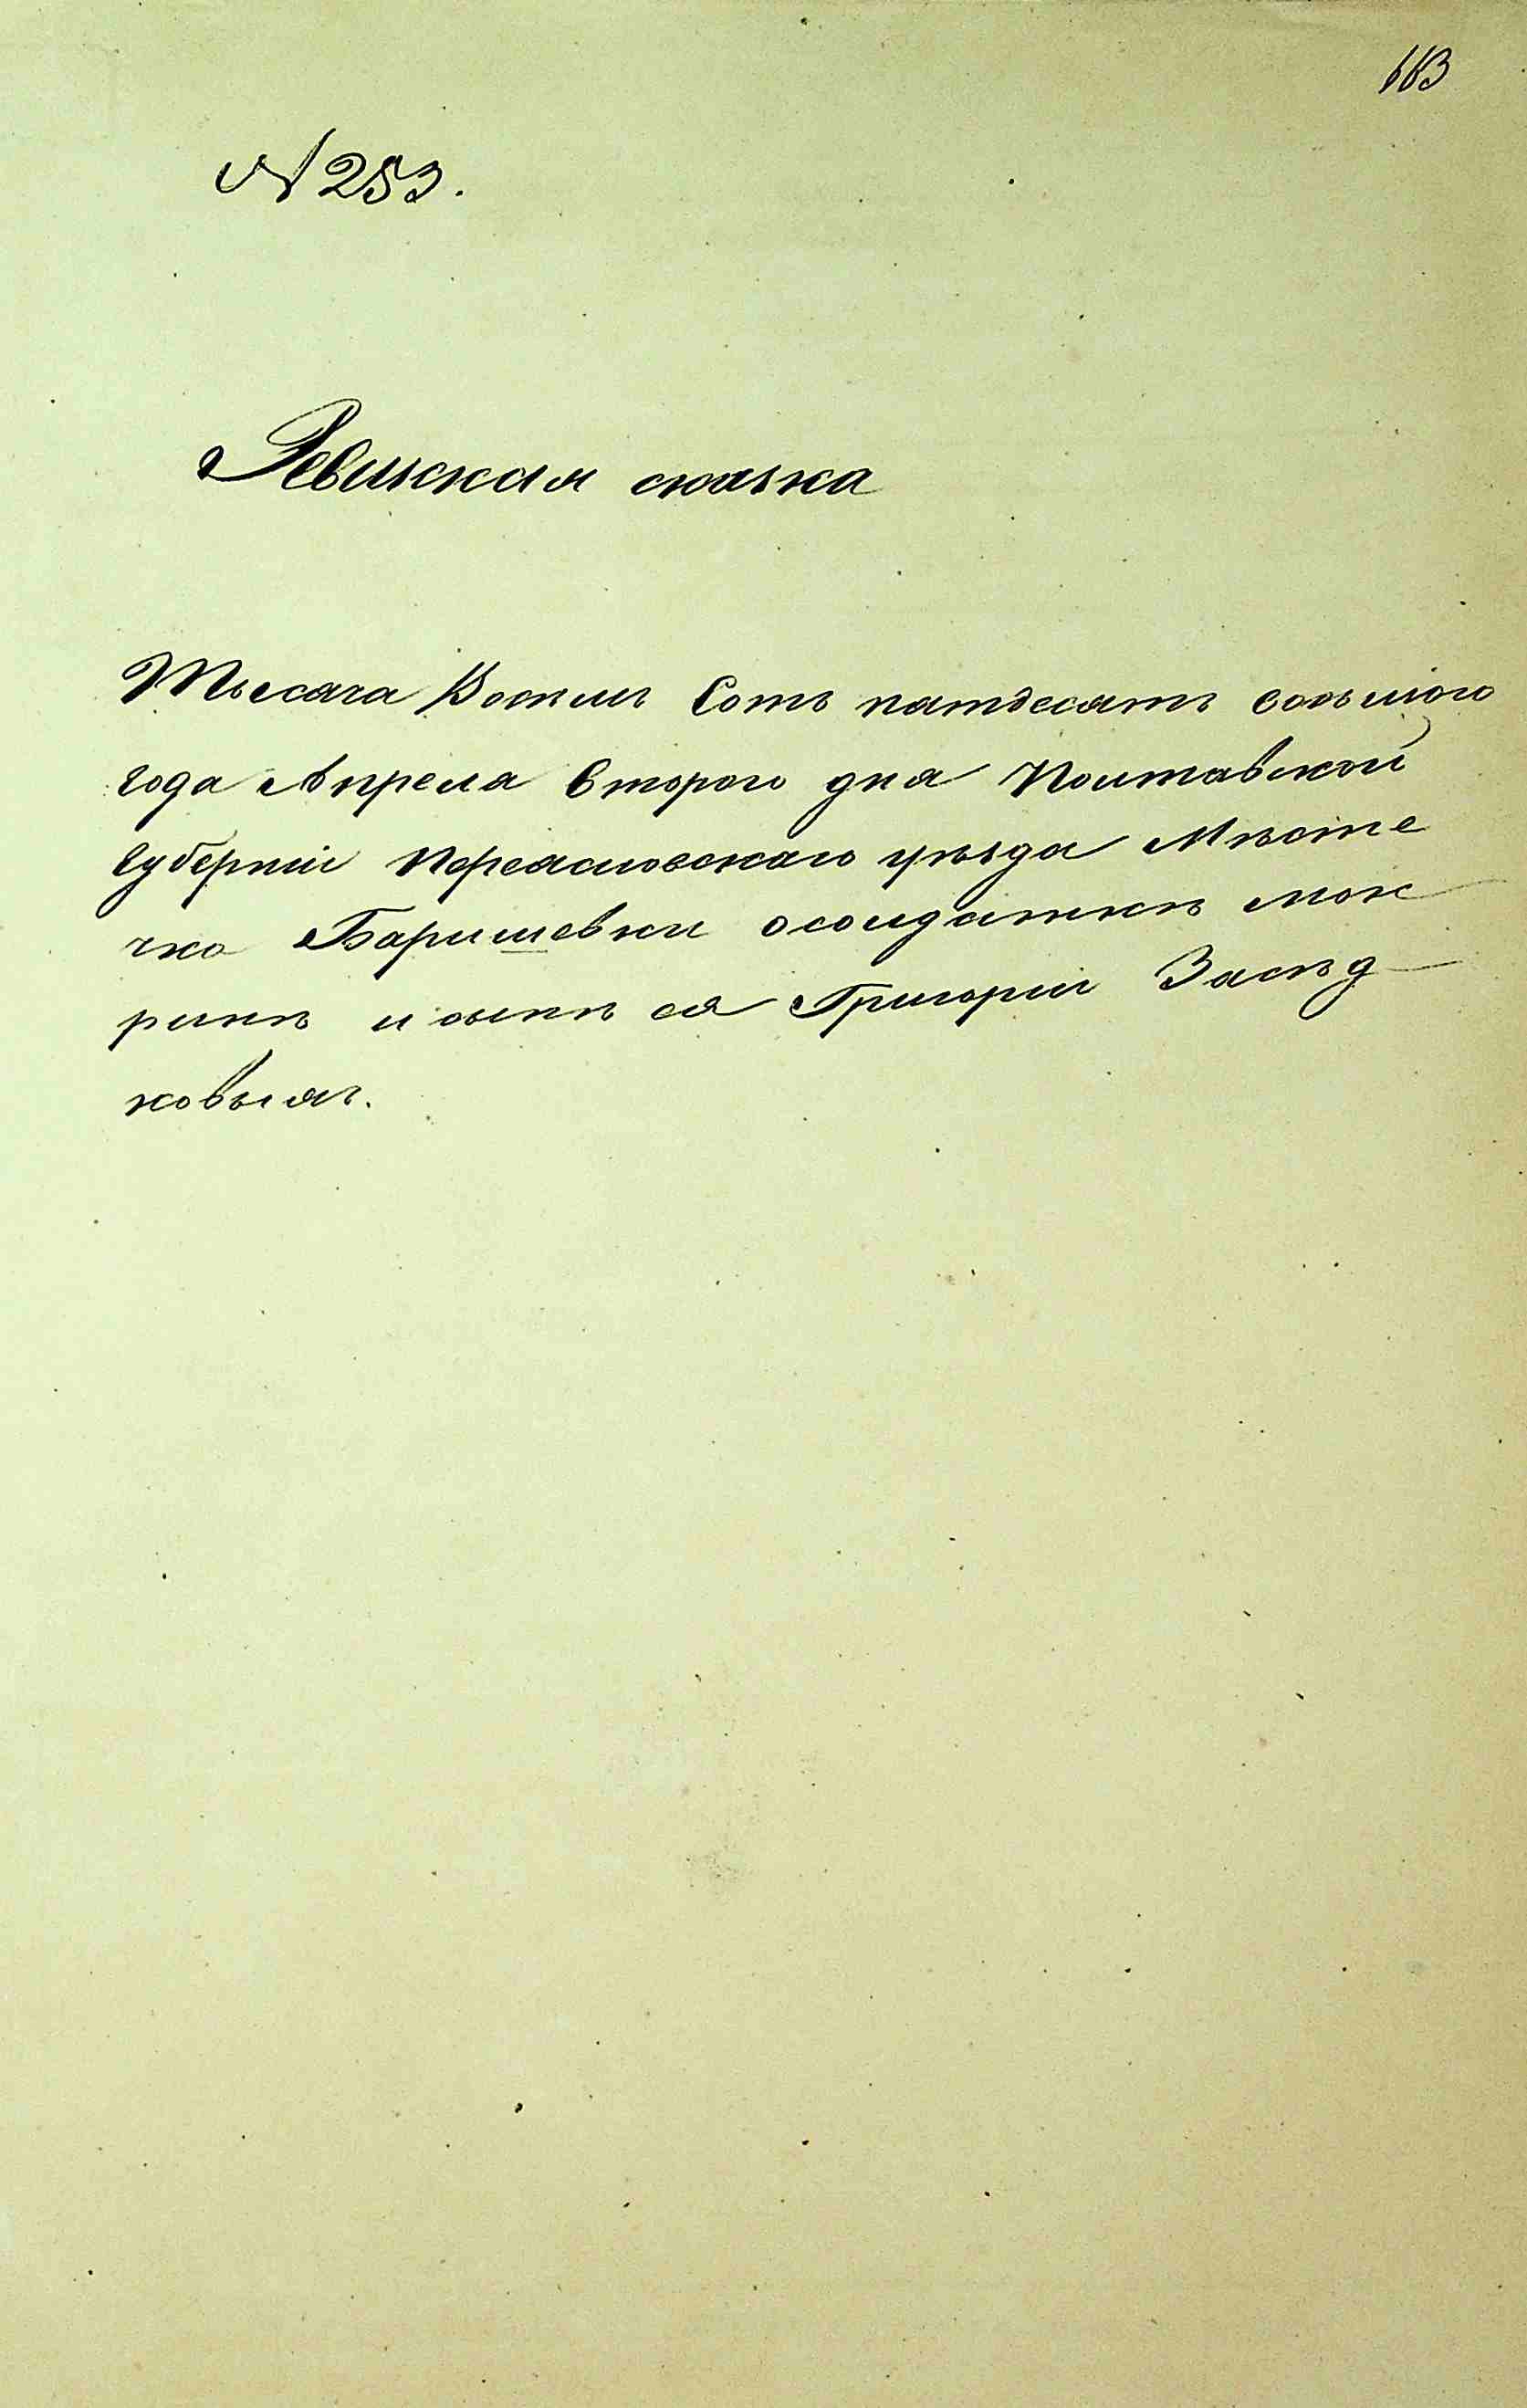 663
№ 253.
Ревизская сказка
Тысяча Восемъ Сотъ пятдесятъ седьмого
года Апреля Второго дня Полтавской
Губерніи Переясловскаго уѣзда Мѣсте
чка Баришевки осолдаткѣ мок
ринѣ и сынѣ ея Григоріи Засѣд
ковыхъ.